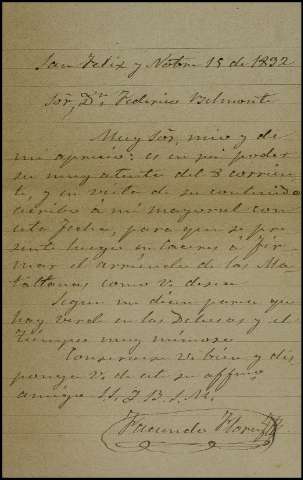 San Felix y Nobre 15 de 1892
Sor, Dn Federico Belmonte
Muy Sor, mio y de
mi aprecio: es en mi poder
su muy atenta del 3 corrien
te, y en vista de su contenido
escribo á mi mayoral con
esta fecha, para que se pre
sente luego en Cáceres a fir
mar el arriendo de las Ma
tallanas como V. desea
Sigue un dian para que
hay verde en las Dehesas y el
tiempo muy
Conservese V. bien y dis
ponga V. de este su affmo
amigo S. S. Q. B. S. M.
Facundo Florez